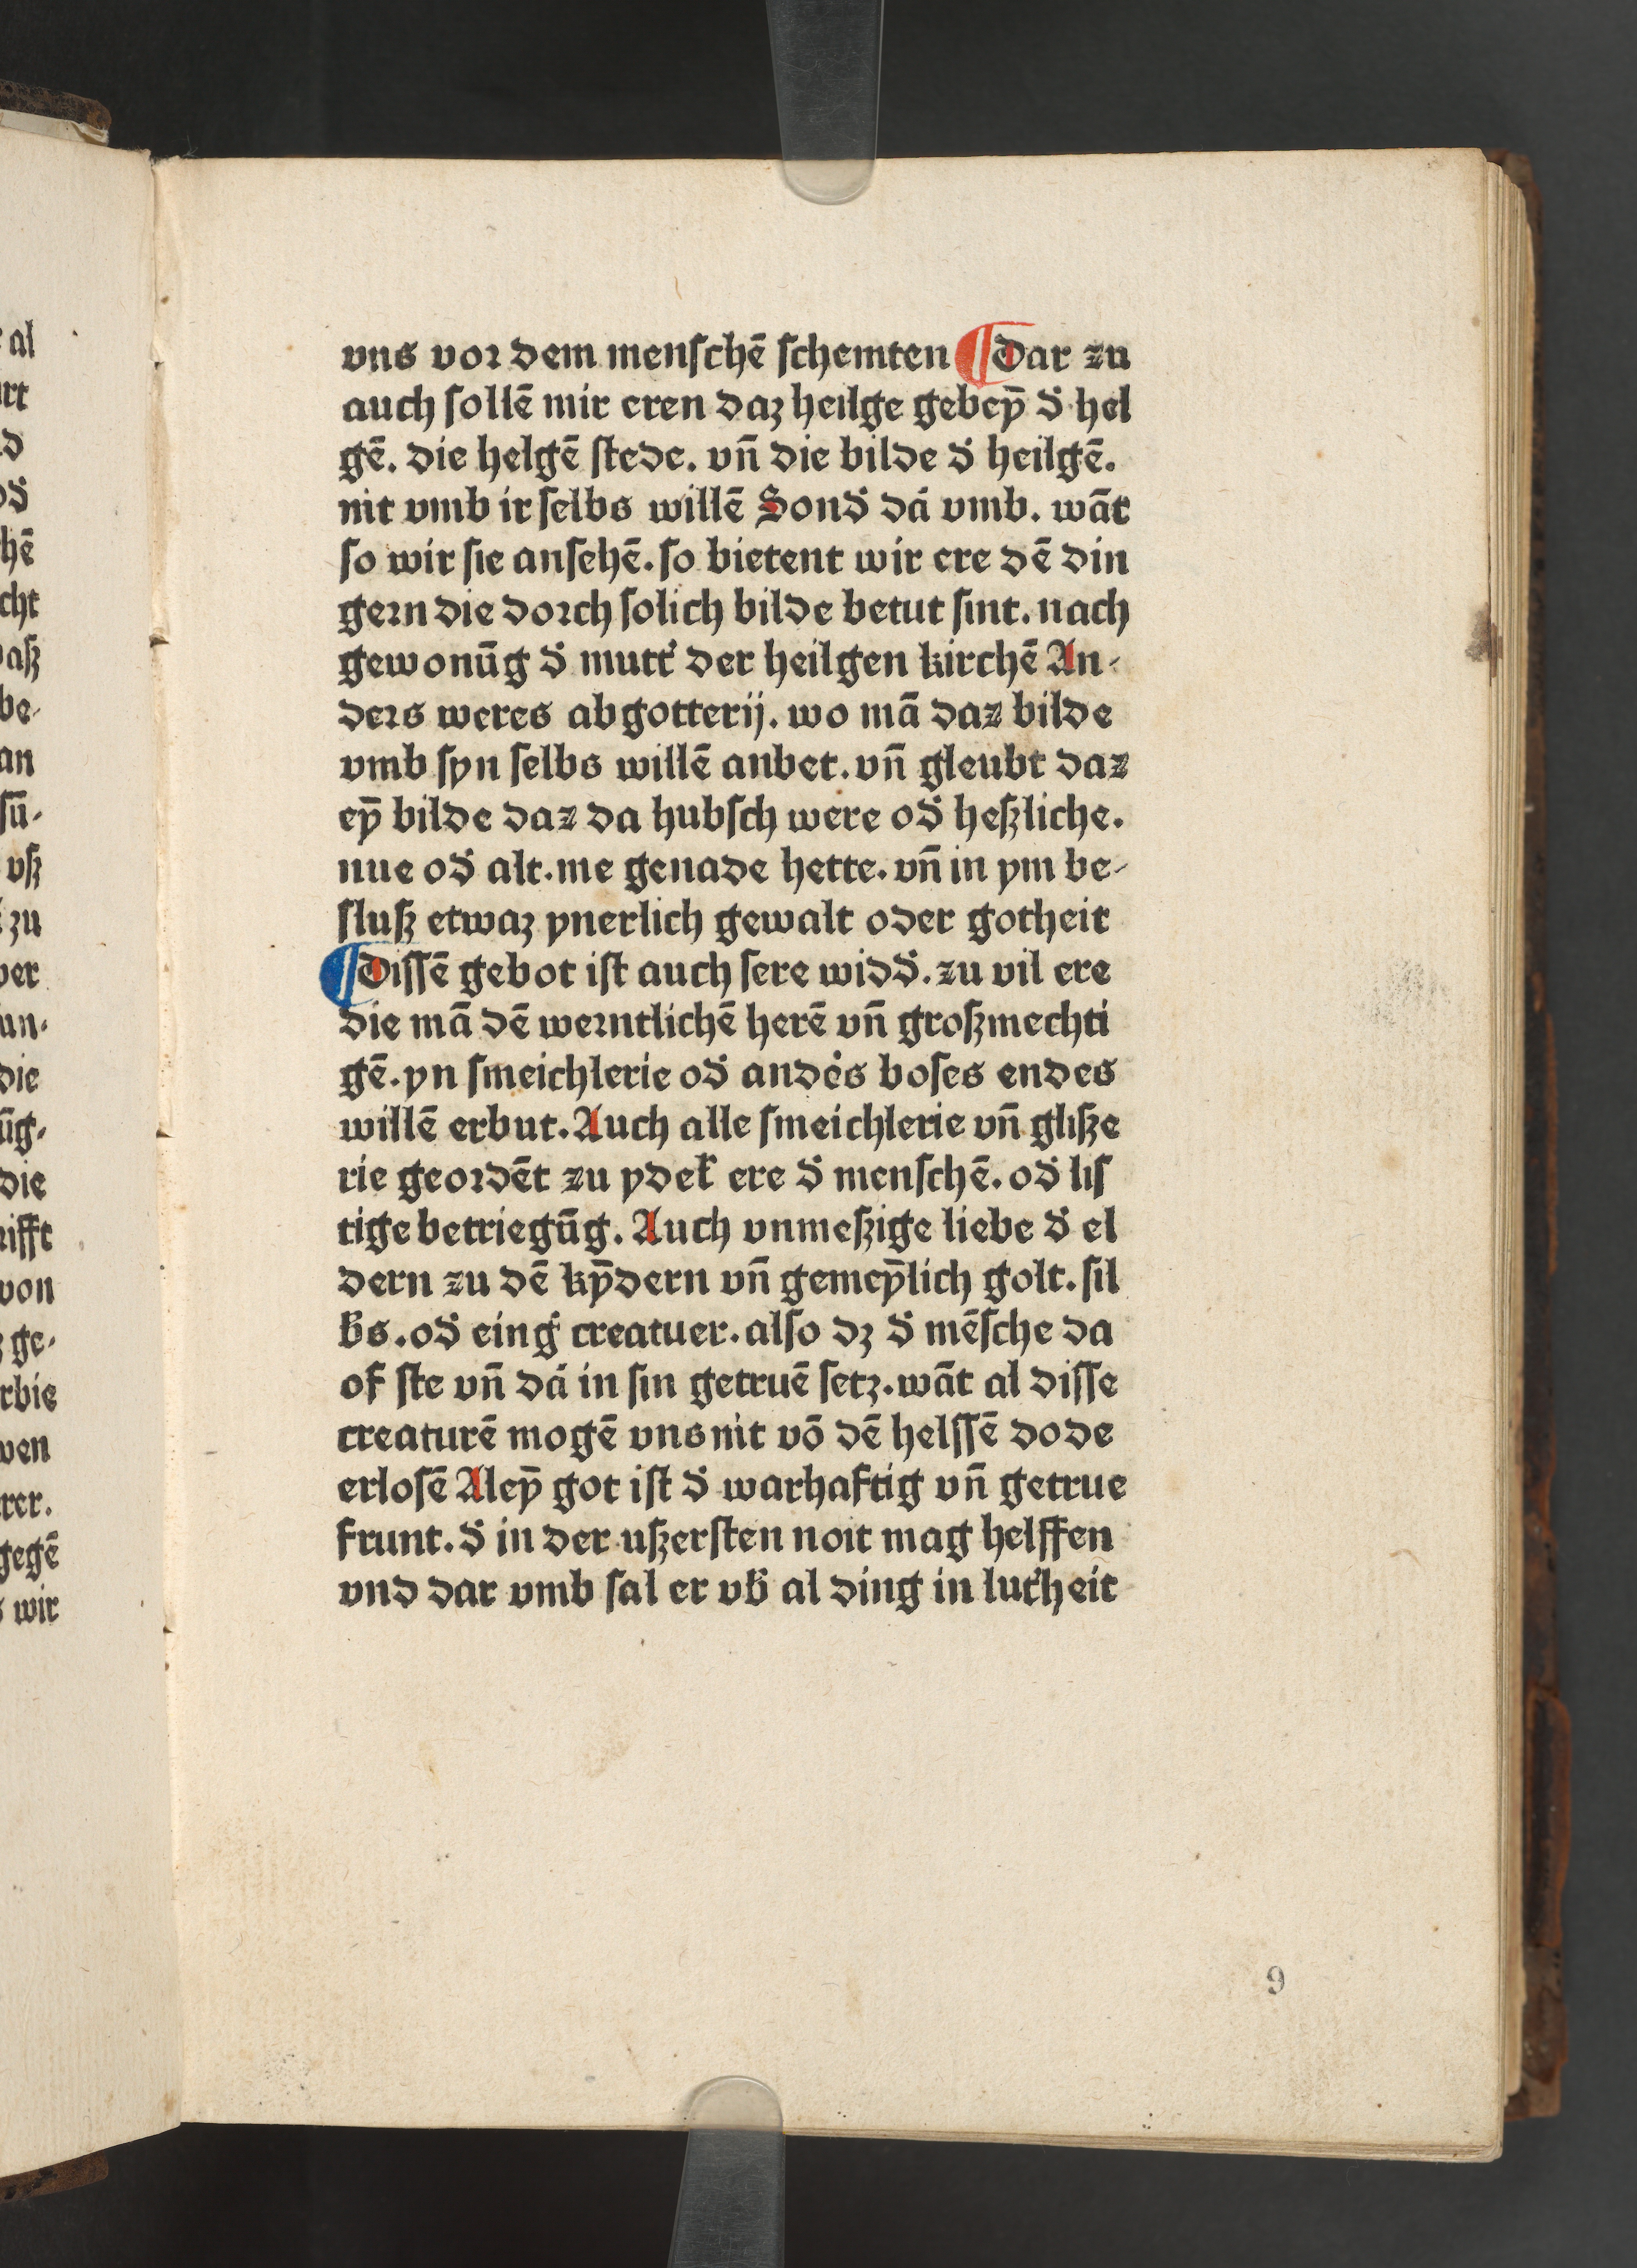 vns vor dem menschē schemten ¶ Dar zu
auch sollē mir eren daz heilge gebeyn̄ d̕ hel
gē. die helgē stede. vn̄ die bilde d̕ heilgē.
nit vmb ir selbs willē Sond̕ da̕ vmb. wāt
so wir sie ansehē. so bietent wir ere dē din
gern die dorch solich bilde betut sint. nach
gewonūg d̕ mutt̕ der heilgen kirchē An-
ders weres abgotterij. wo mā daz bilde
vmb syn selbs willē anbet. vn̄ gleubt daz
eȳ bilde daz da hubsch were od̕ heßliche.
nue od̕ alt. me genade hette. vn̄ in ym be-
sluß etwaz ynerlich gewalt oder gotheit
¶ Dissē gebot ist auch sere widd̕. zu vil ere
die mā dē werntlichē herē vn̄ großmechti
gē. yn smeichlerie od̕ ande̕s boses endes
willē erbut. Auch alle smeichlerie vn̄ gliße
rie geordēt zu ydek̕ ere d̕ menschē. od̕ lis
tige betriegūg. Auch vnmeßige liebe d̕ el
dern zu dē kȳdern vn̄ gemeȳlich golt. sil
b̕s. od̕ eing̕ creatuer. also dz d̕ mēsche da
of ste vn̄ da̕ in sin getruē setz. wāt al disse
creaturē mogē vns nit vō dē helssē dode
erlosē Aleȳ got ist d̕ warhaftig vn̄ getrue
frunt. d̕ in der ußersten noit mag helffen
vnd dar vmb sal er vb̕ al ding in lut̕heit
9